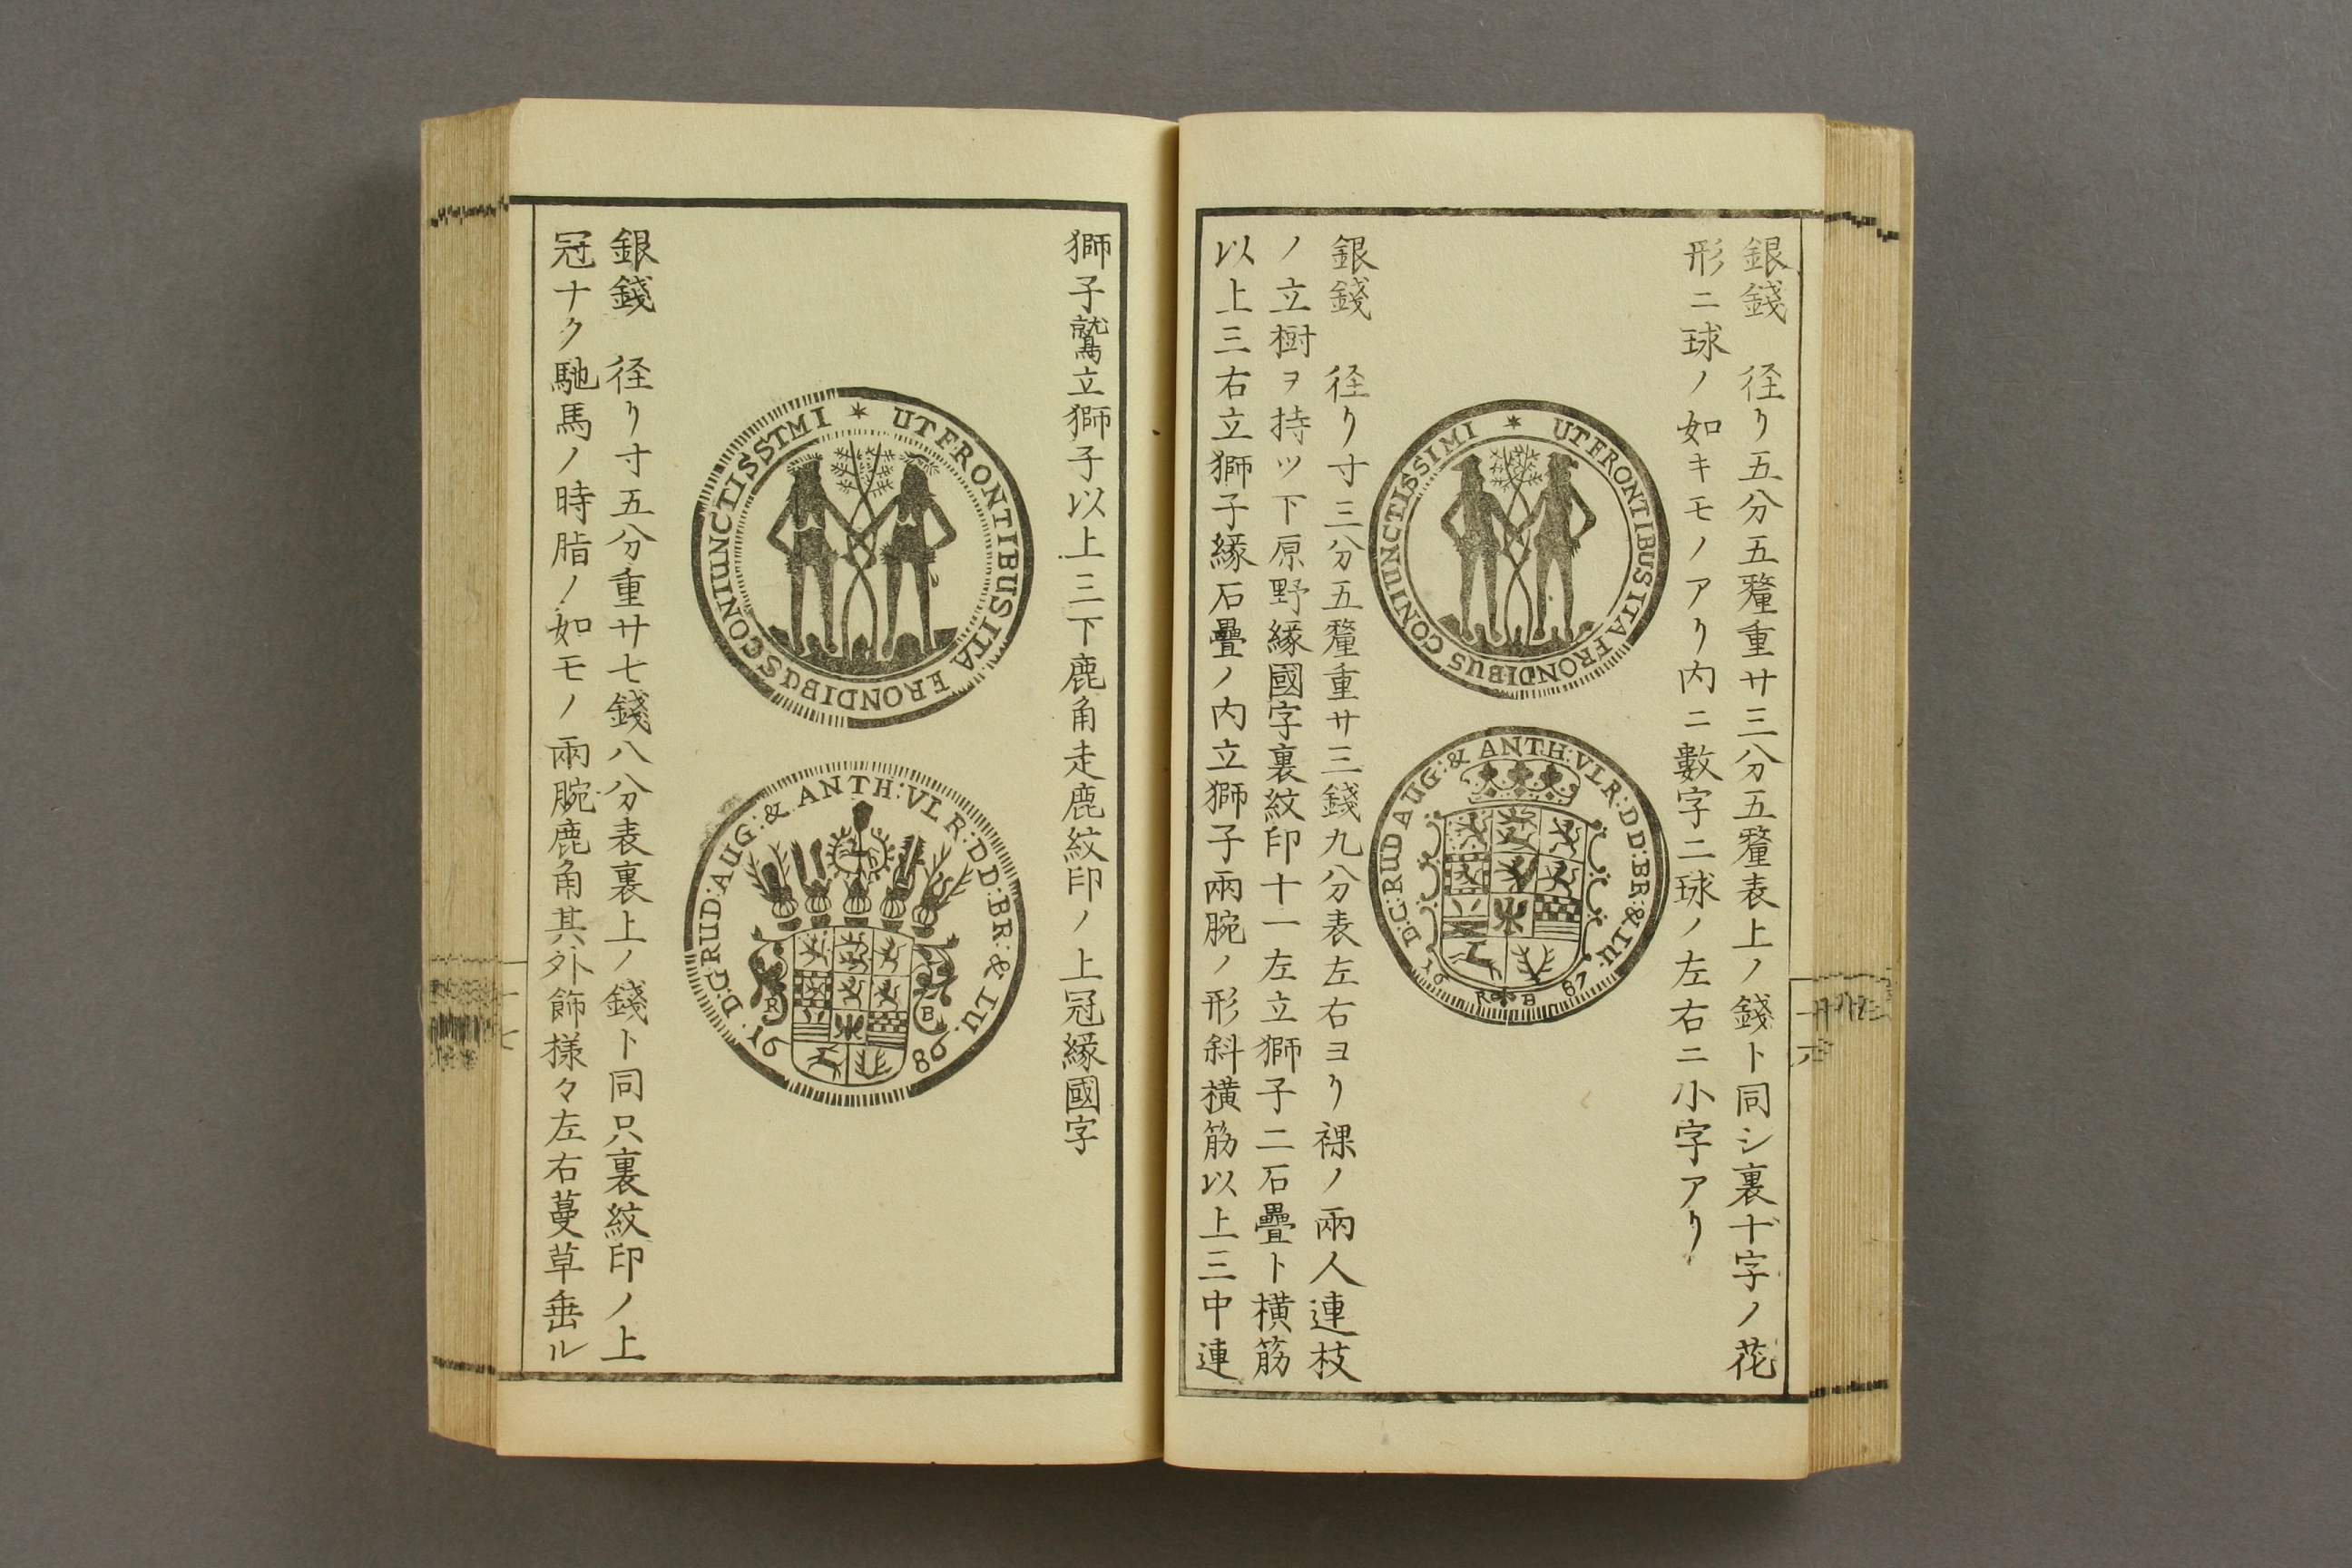 銀錢　径リ五分五釐重廿三分五釐表上ノ錢ト同シ裏十字ノ花
形ニ球ノ如キモノアリ内ニ數字二球ノ左右ニ小字アリ
UT FRONTIBUS ITA FRONDIBUS CONIUNCTISSIMI
D:G:RUD AUG:& ANTH:VLR:DD:BR:&LU:
16 R B 87
銀錢　径リ寸三分五釐重廿三錢九分表左右ヨリ裸ノ兩人連枝
ノ立樹ヲ持ツ下原野縁國字裏紋印十一左立獅子二石疊ト横筋
以上三右立獅子縁石疊ノ内立獅子兩腕ノ形斜横筋以上三中連
獅子鷲立獅子以上三下鹿角走鹿紋印ノ上冠縁國字
UT FRONTIBUS ITA FRONDIBUS CONIUNCTISSIMI
D:G:RUD:AUG:& ANTH:VLR:DD:BR:&LU.
R B
16 86
銀錢　径リ寸五分重廿七錢八分表裏上ノ錢ト同只裏紋印ノ上
冠ナク馳馬ノ時脂ノ如モノ兩腕鹿角其外飾様々左右蔓草垂ル